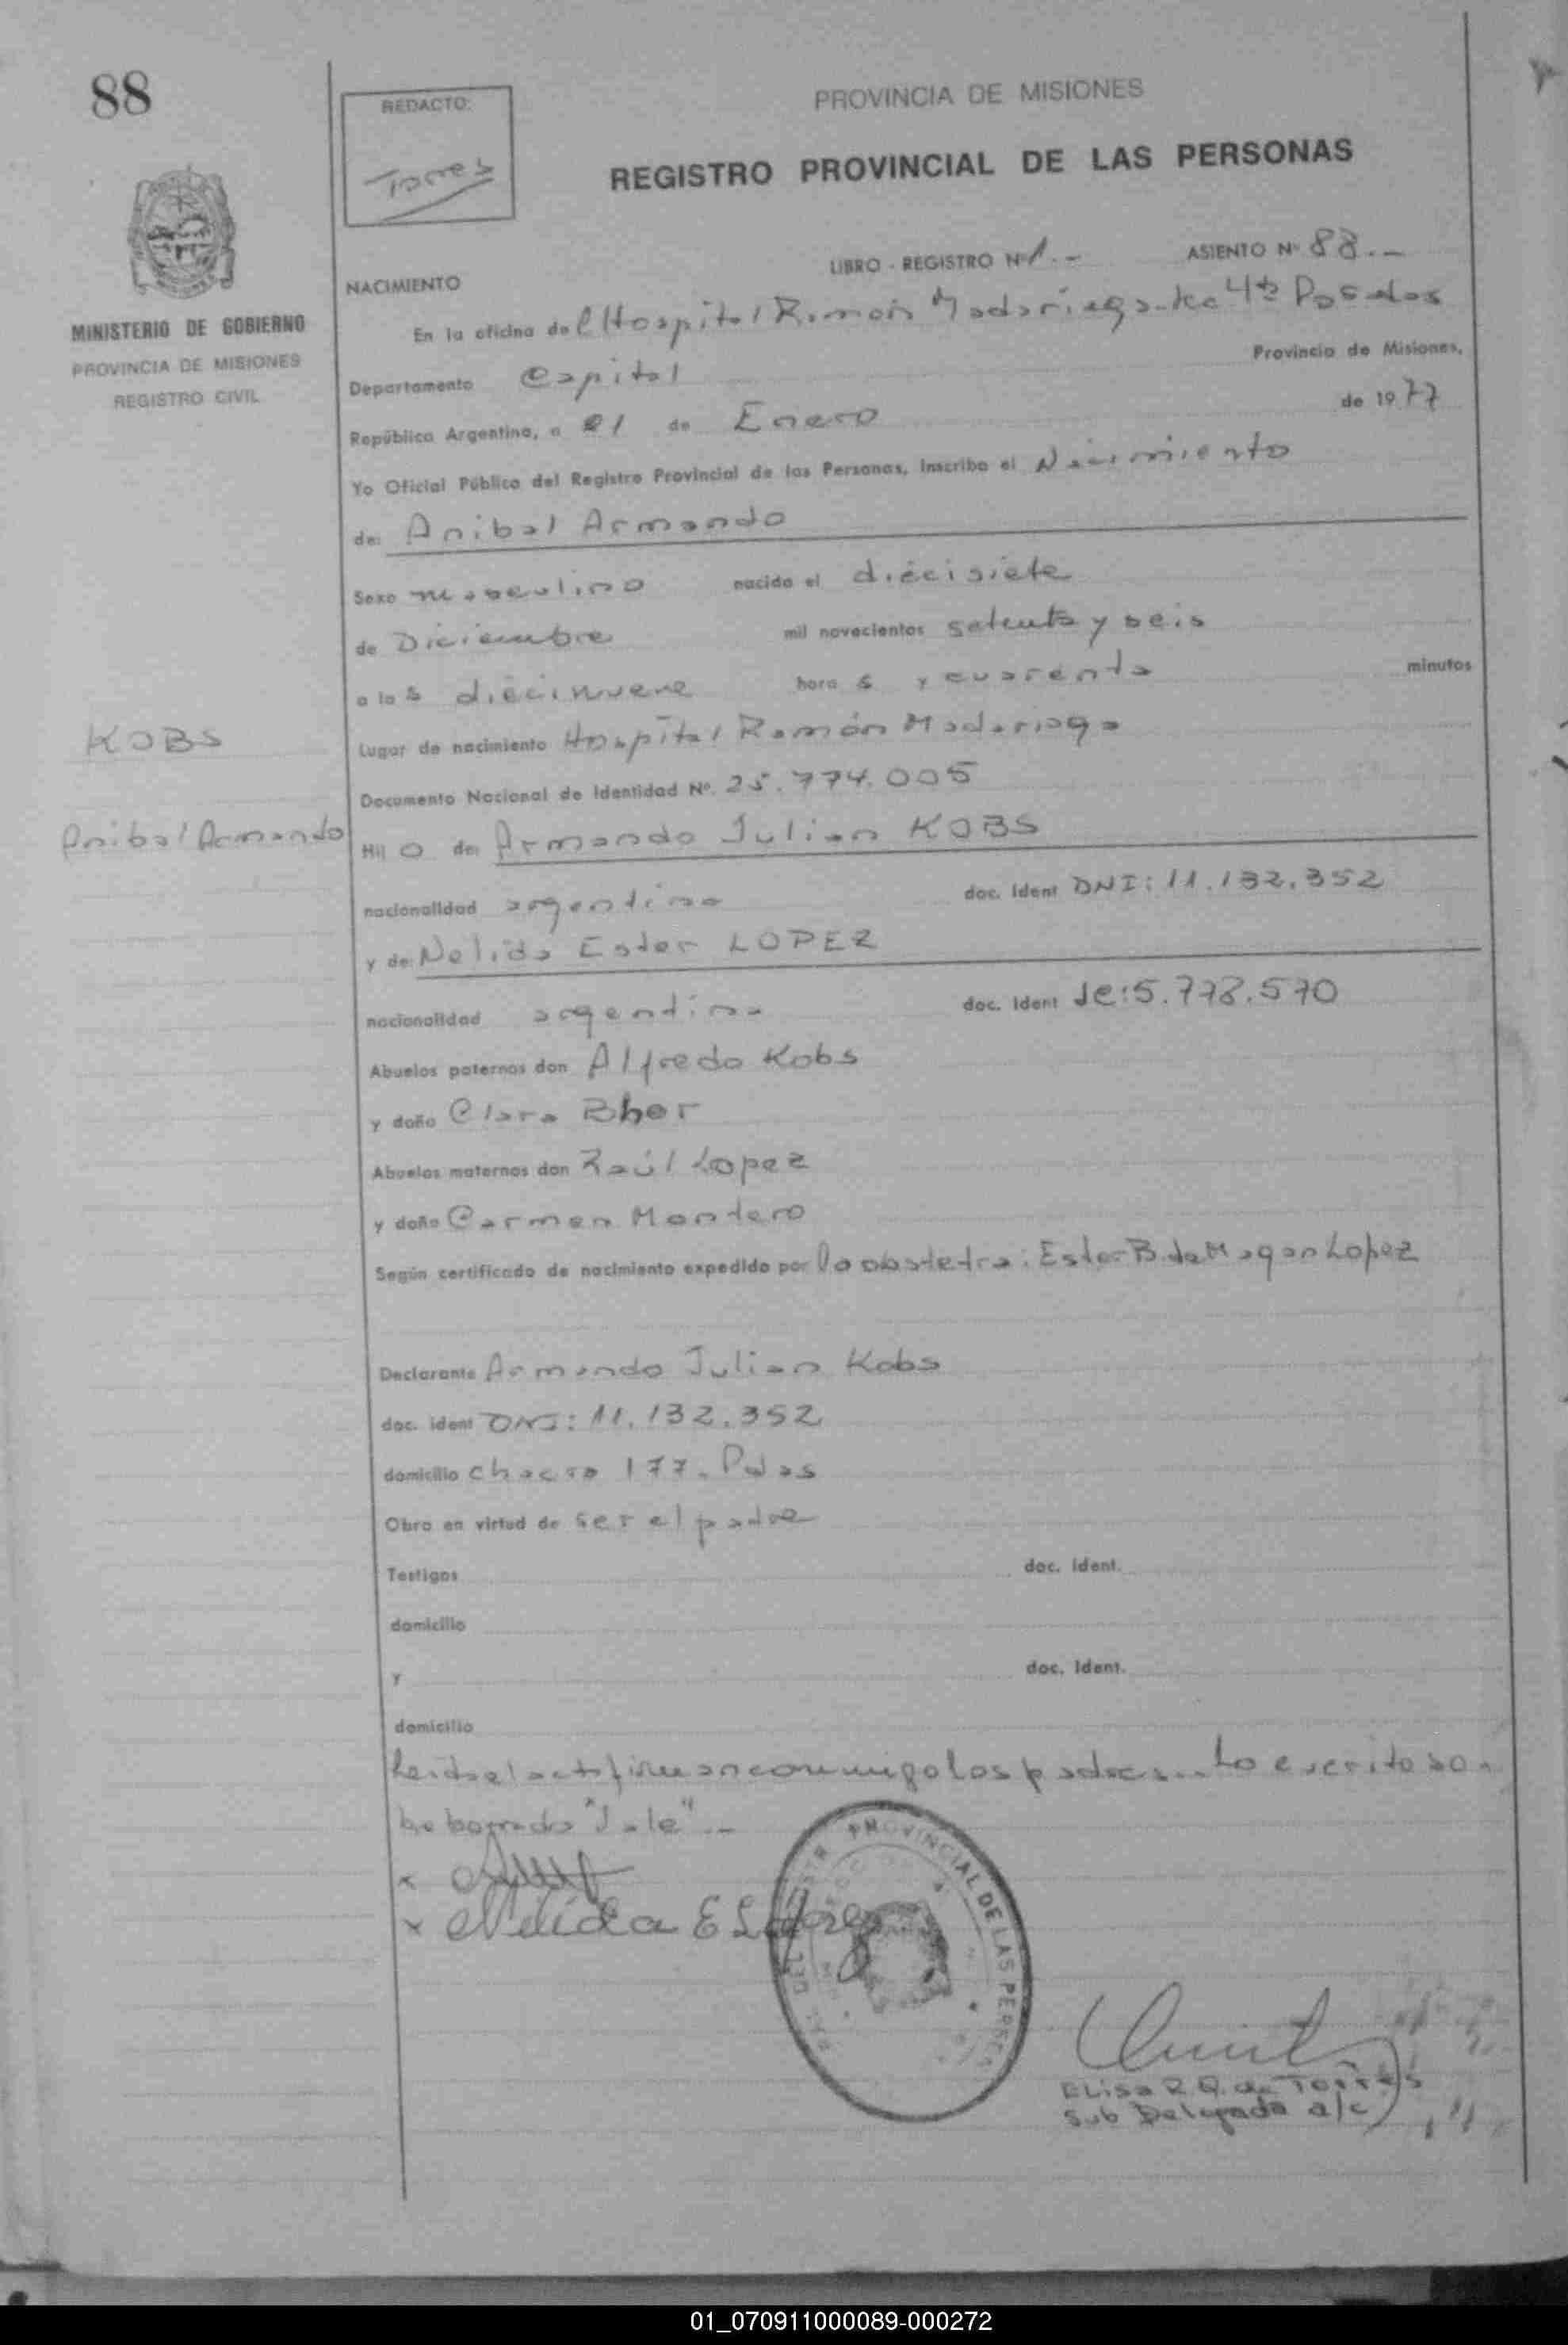 88
REDACTO:
Torres
PROVINCIA DE MISIONES
REGISTRO PROVINCIAL DE LAS PERSONAS
MINISTERIO DE GOBIERNO
PROVINCIA DE MISIONES
REGISTRO CIVIL
KOBS
Anibal Armando
NACIMIENTO
LIBRO - REGISTRO Nº 1.-
ASIENTO Nº 88.-
En la oficina del Hospital Ramón Madariaga 4ta Posadas
Departamento Capital Provincia de Misiones,
República Argentina, a 21 de Enero de 1977
Yo Oficial Público del Registro Provincial de las Personas, inscribo el Nacimiento
de: Anibal Armando
Sexo masculino nacido el diécisiete
de Diciembre mil novecientos setenta y seis
a las diécinueve horas y cuarenta minutos
Lugar de nacimiento Hospital Ramón Madariaga
Documento Nacional de Identidad Nº. 25.774.005
Hijo de: Armando Julian KOBS
nacionalidad argentina doc. ident DNI: 11.132.352
y de: Nelida Ester LOPEZ
nacionalidad argentina doc. ident 5.778.570
Abuelos paternos don Alfredo Kobs
y doña Clara Bher
Abuelos maternos don Raúl Lopez
y doña Carmen Montero
Según certificado de nacimiento expedido por la obstetra: Ester B. de Lopez
Declarante Armando Julian Kobs
doc. ident DNI: 11.132.352
domicilio chacra 177. Pdas
Obra en virtud de ser el padre
Testigos doc. ident.
domicilio
y doc. ident.
domicilio
Leida el acta firman conmigo los padres.- Lo escrito so-
bre borrado
x
x Nélida E López
PROVINCIAL DE LAS PERSONAS
Elisa R. Q. de Torres
Sub Delegada a/c
01_070911000089-000272